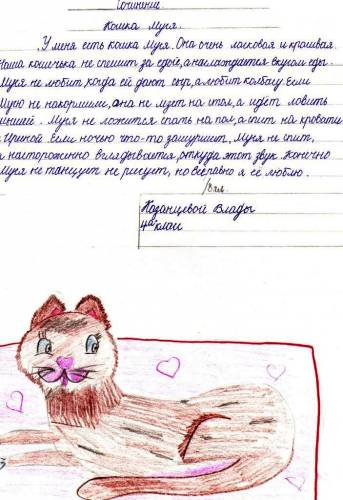 Сочинение
Кошка Муля.
У меня есть кошка Муля. Она очень ласковая и красивая.
Наша кошечка не спешит за едой, а наслаждается вкусом еды.
Муля не любит когда ей дают сыр, а любит колбасу. Если
Мулю не накормили, она не лезет на стол, а идёт ловить
мышей. Муля не ложится спать на пол, а спит на кровати
с Ириной. Если ночью что-то зашуршит, Муля не спит,
а настороженно вглядывается, откуда этот звук. Конечно
Муля не танцует не рисует, но всё равно я её люблю.
Казанцевой Влады
4а класс